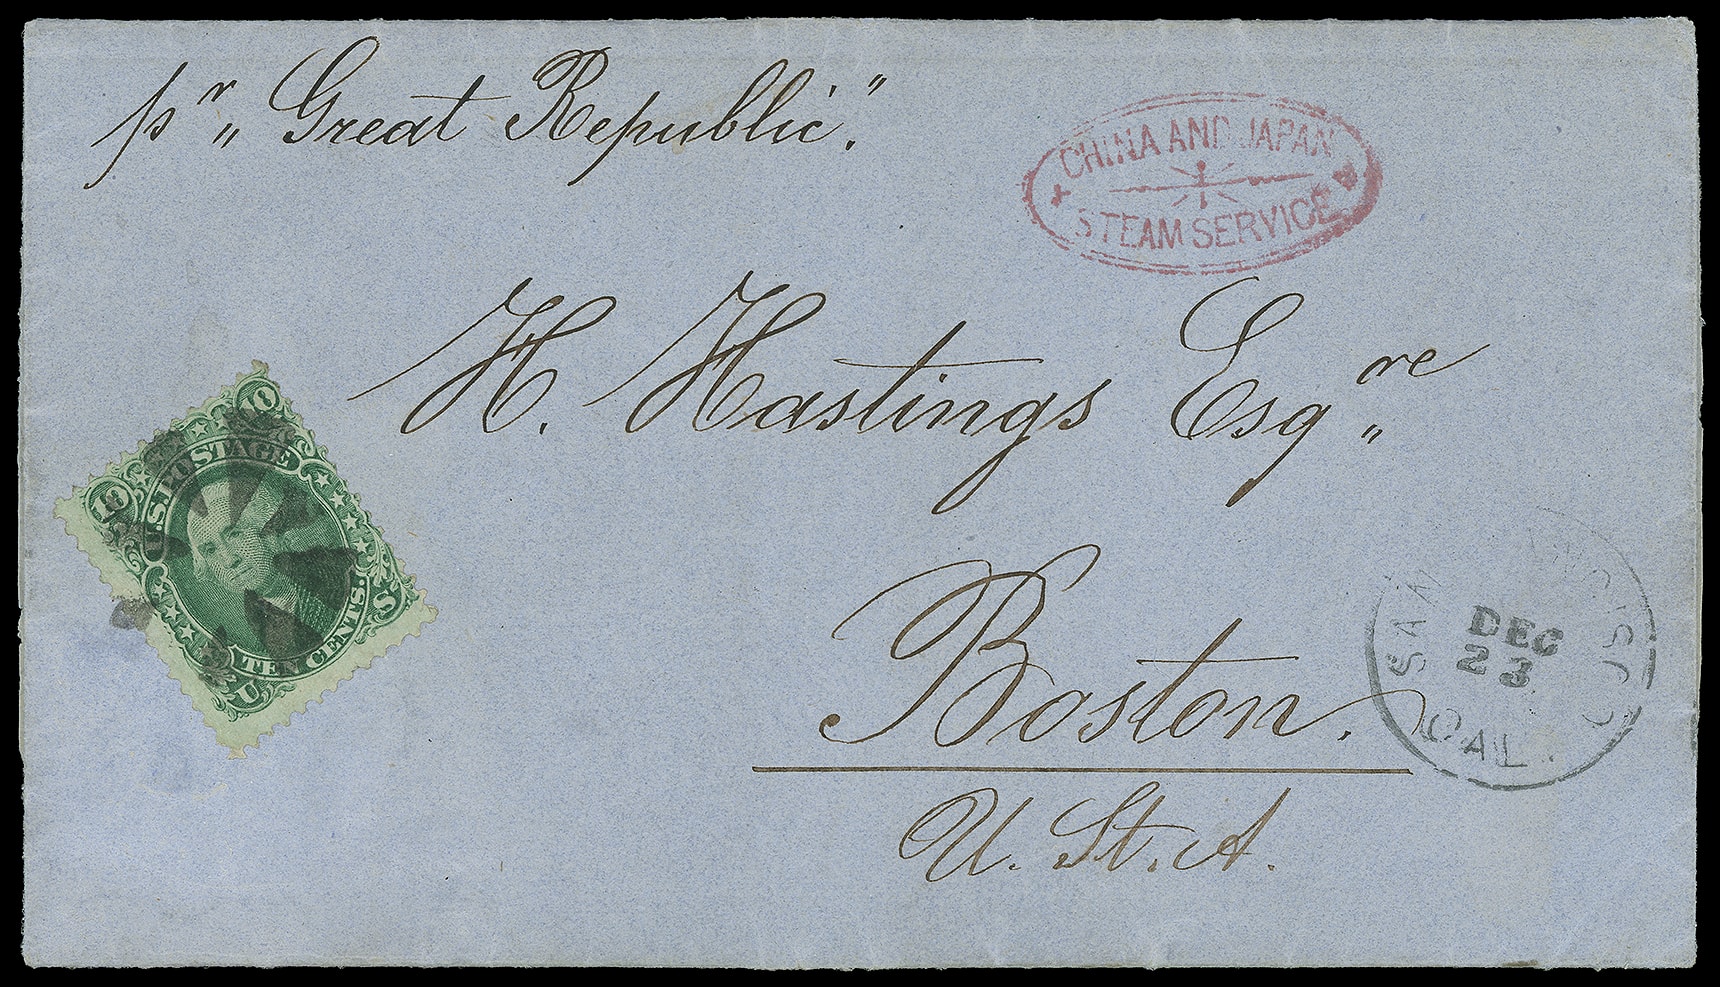 pr „ Great Republic."
CHINA AND JAPAN
STEAM SERVICE
H. Hastings Esqre „
Boston.
U. St. A.
10 10
U.S. POSTAGE
TEN CENTS.
U S
SAN CISCO
DEC
23
CAL.